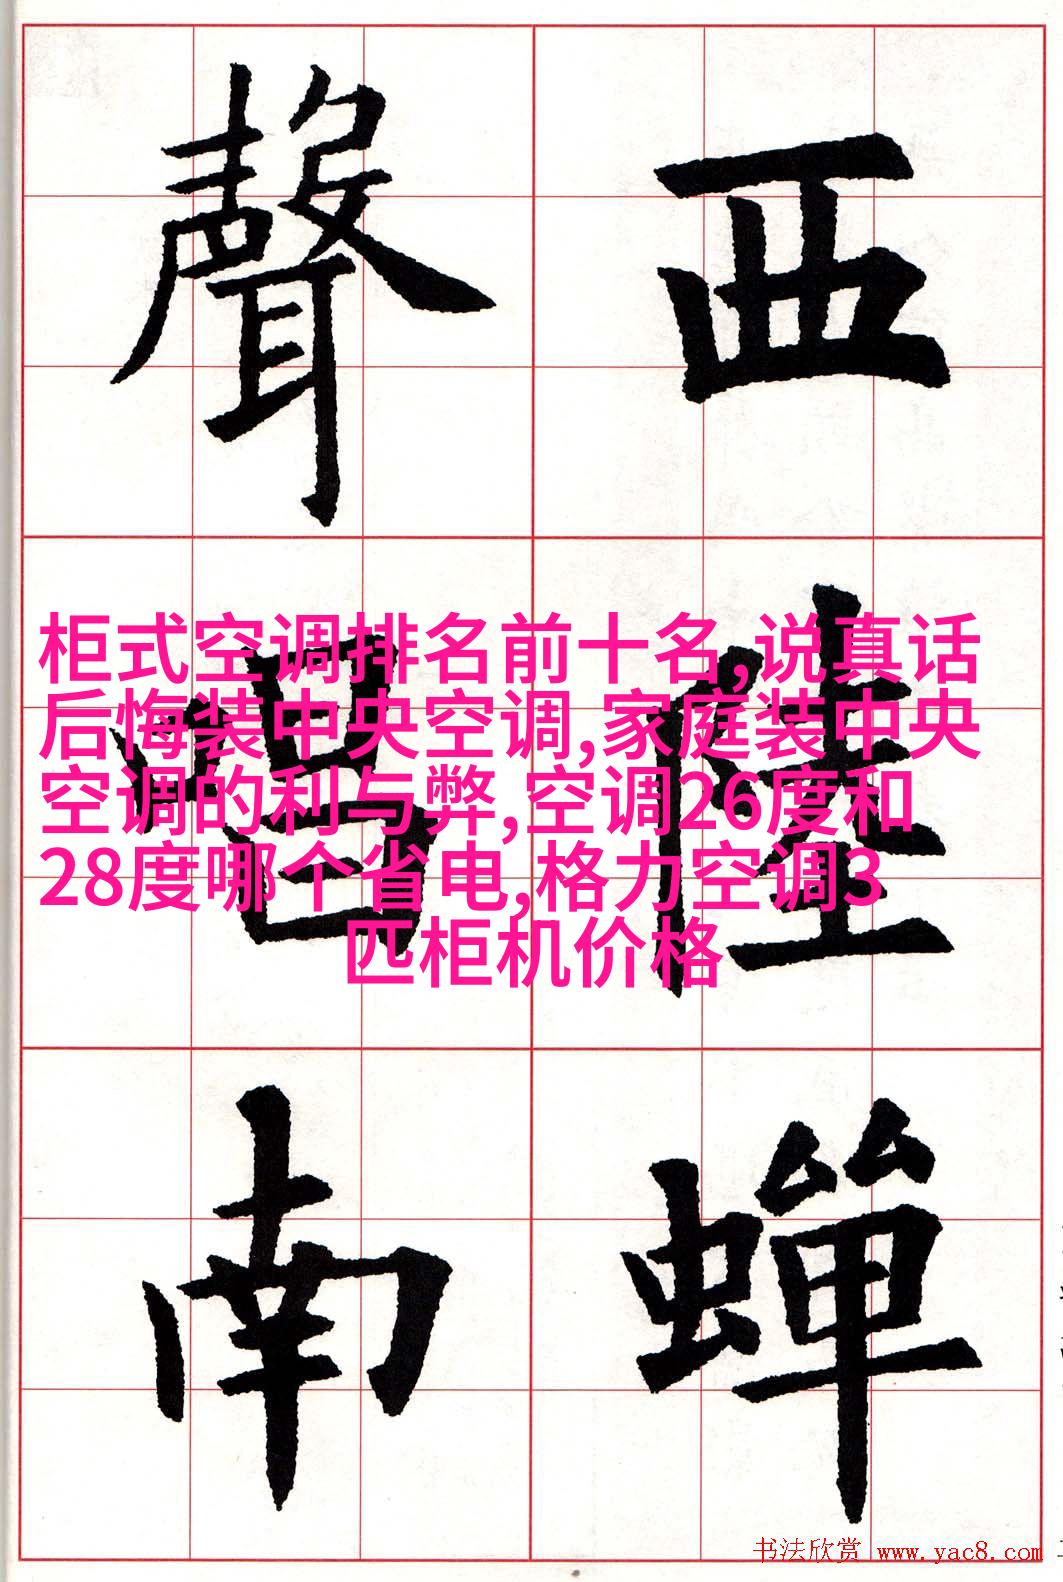 西陸蟬
聲唱南
柜式空调排名前十名,说真话
后悔装中央空调,家庭装中央
空调的利与弊,空调26度和
28度哪个省电,格力空调3
匹柜机价格
书法欣赏 www.yac8.com